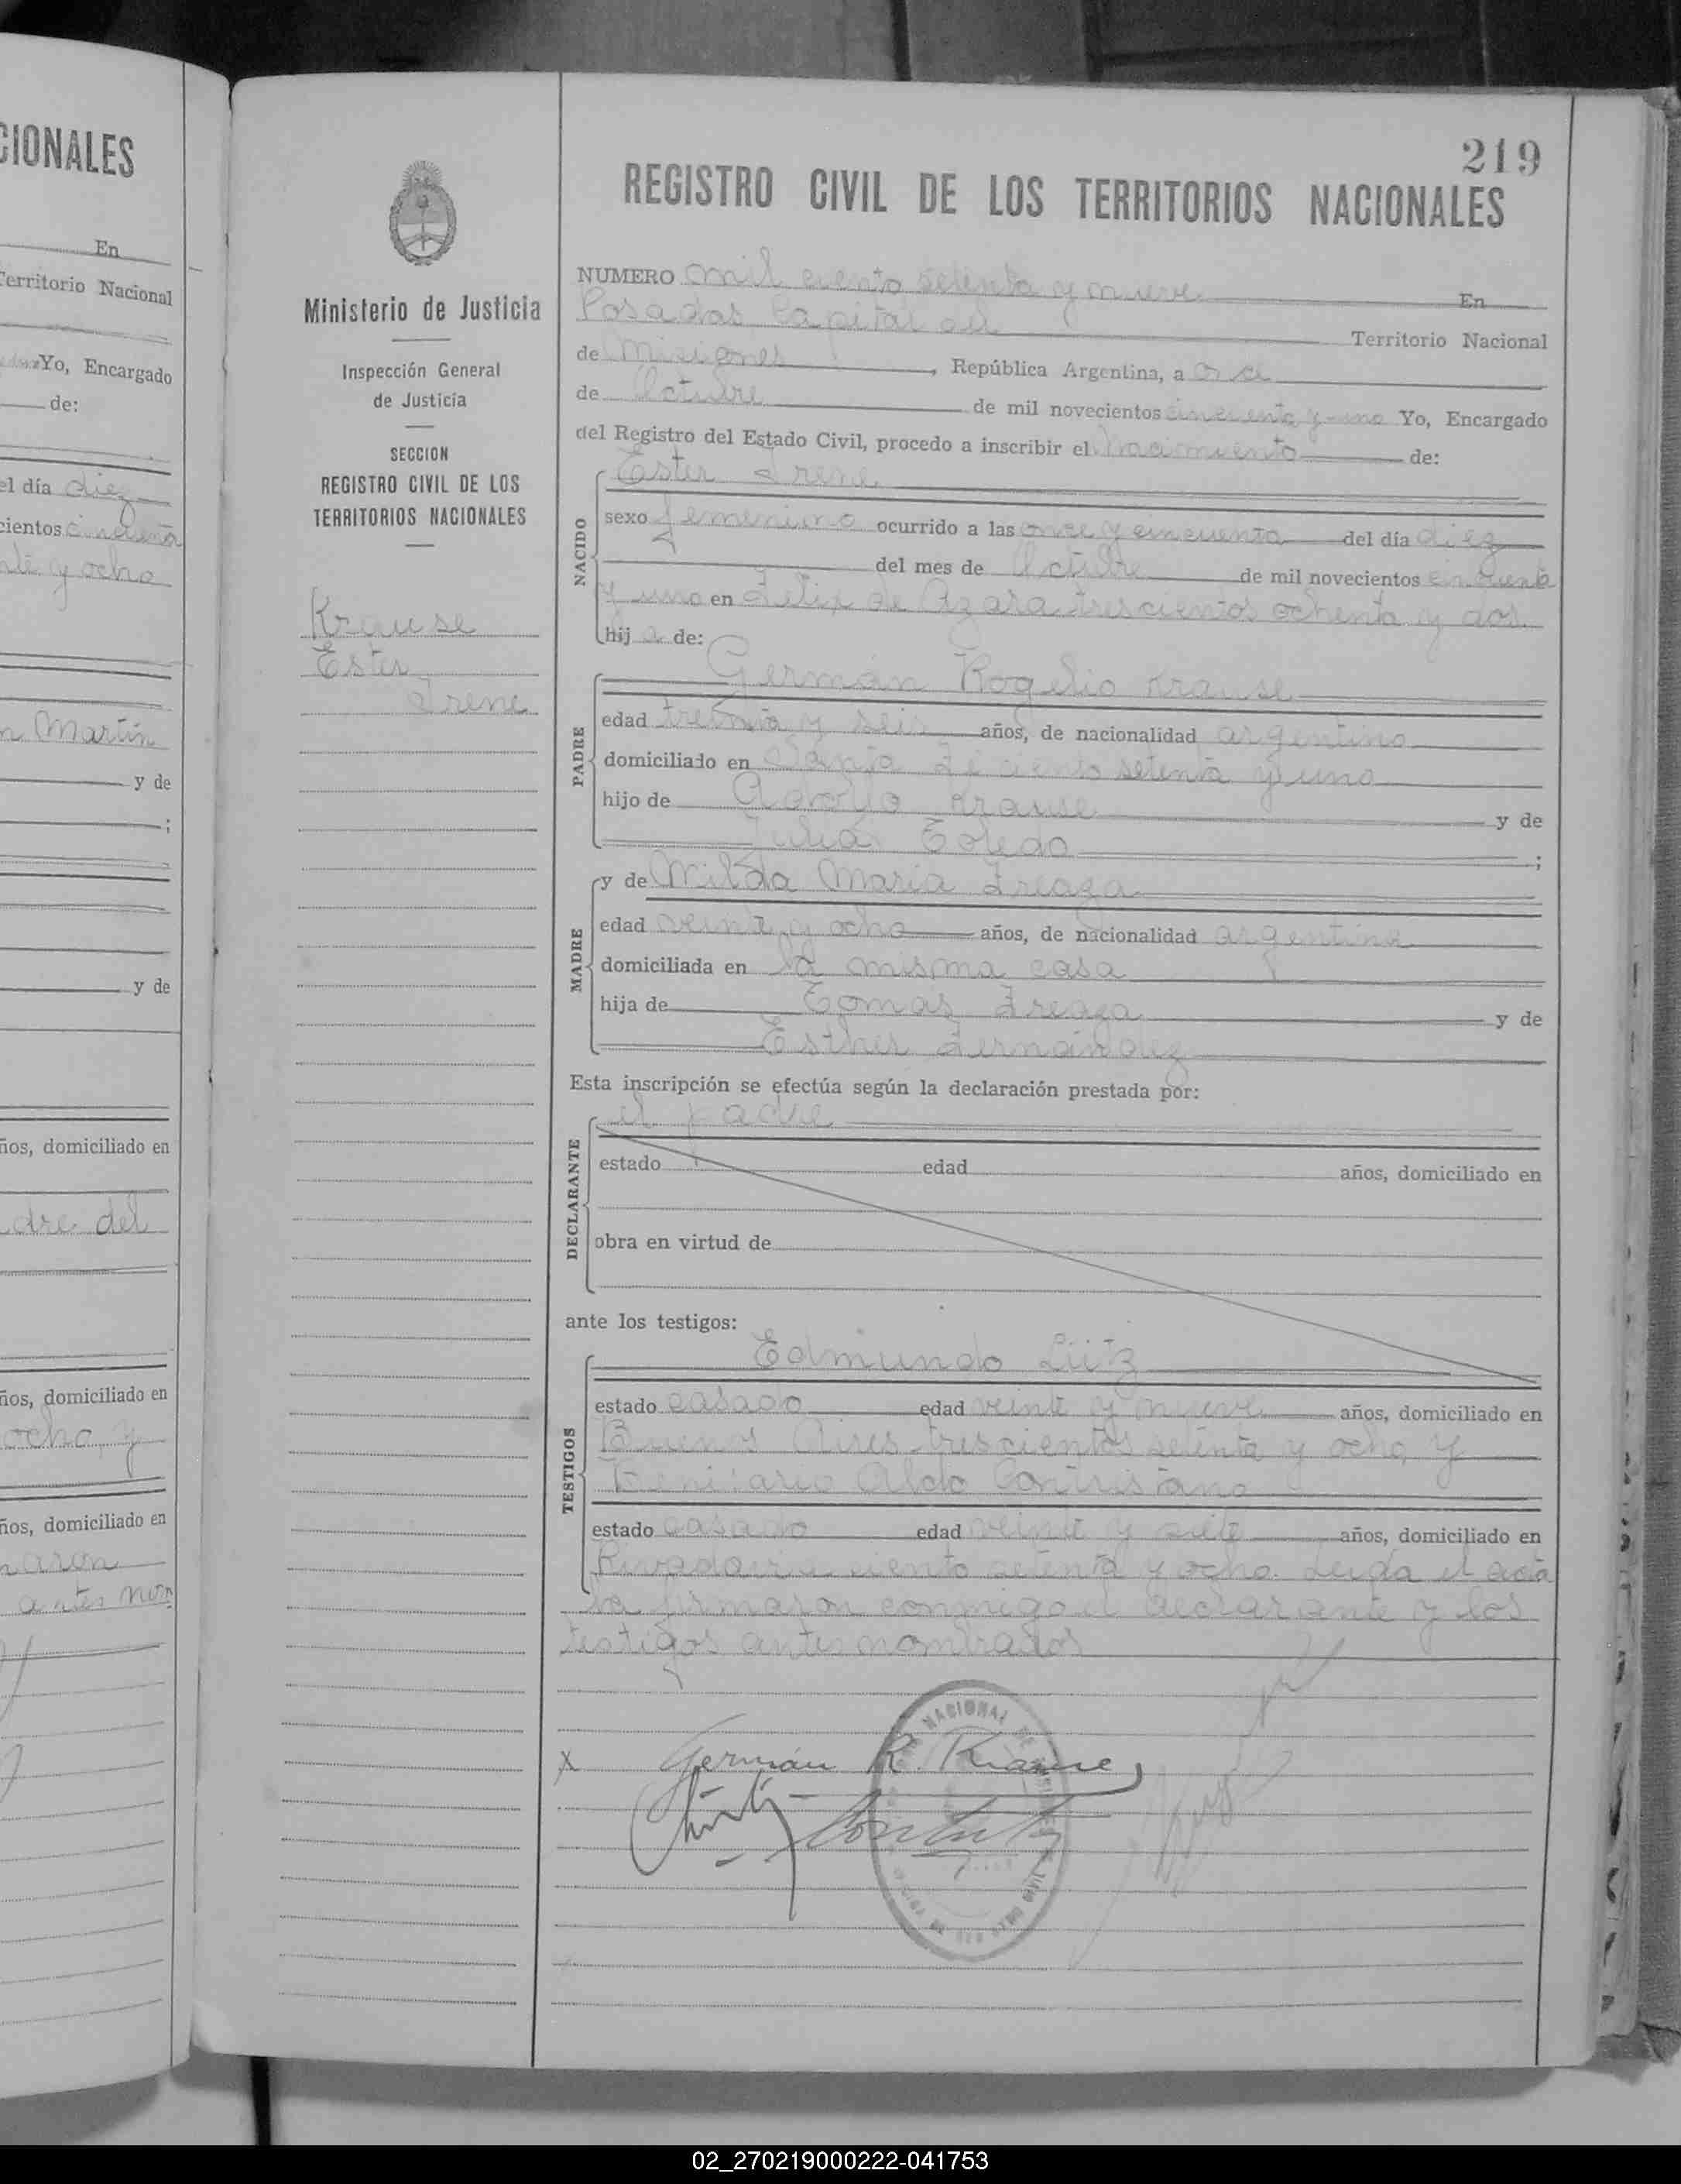 CIONALES
En
Territorio Nacional
Yo, Encargado
de:
el día diez
cientos cincuenta
y ocho
n Martín
y de
;
y de
ños, domiciliado en
adre del
ños, domiciliado en
ocho, y
ños, domiciliado en
maron
antes nom
Ministerio de Justicia
Inspección General
de Justicia
SECCION
REGISTRO CIVIL DE LOS
TERRITORIOS NACIONALES
Krause
Ester
Irene
219
REGISTRO CIVIL DE LOS TERRITORIOS NACIONALES
NUMERO mil ciento setenta y nueve En
Posadas Capital del Territorio Nacional
de Misiones, República Argentina, a once
de Octubre de mil novecientos cincuenta y uno Yo, Encargado
del Registro del Estado Civil, procedo a inscribir el nacimiento de:
NACIDO
Ester Irene
sexo femenino ocurrido a las once y cincuenta del día diez
del mes de Octubre de mil novecientos cincuenta
y uno en Félix de Azara trescientos ochenta y dos
hij a de:
PADRE
Germán Rogelio Krause
edad treinta y seis años, de nacionalidad argentino
domiciliado en Santa Fé ciento setenta y uno
hijo de Adolfo Krause y de
Julia Toledo ;
MADRE
y de Nilda Maria Freaza
edad veinte y ocho años, de nacionalidad argentina
domiciliada en la misma casa
hija de Tomas Freaza y de
Esther Fernández
Esta inscripción se efectúa según la declaración prestada por:
DECLARANTE
el padre
estado edad años, domiciliado en
obra en virtud de
ante los testigos:
TESTIGOS
Edmundo Lütz
estado casado edad veinte y nueve años, domiciliado en
Buenos Aires trescientos setenta y ocho, y
Aldo Contristano
estado casado edad veinte y siete años, domiciliado en
Rivadavia ciento setenta y ocho. Leida el acta
la firmaron conmigo el declarante y los
testigos antes nombrados
X Germán R. Krause
NACIONAL DE
02_270219000222-041753